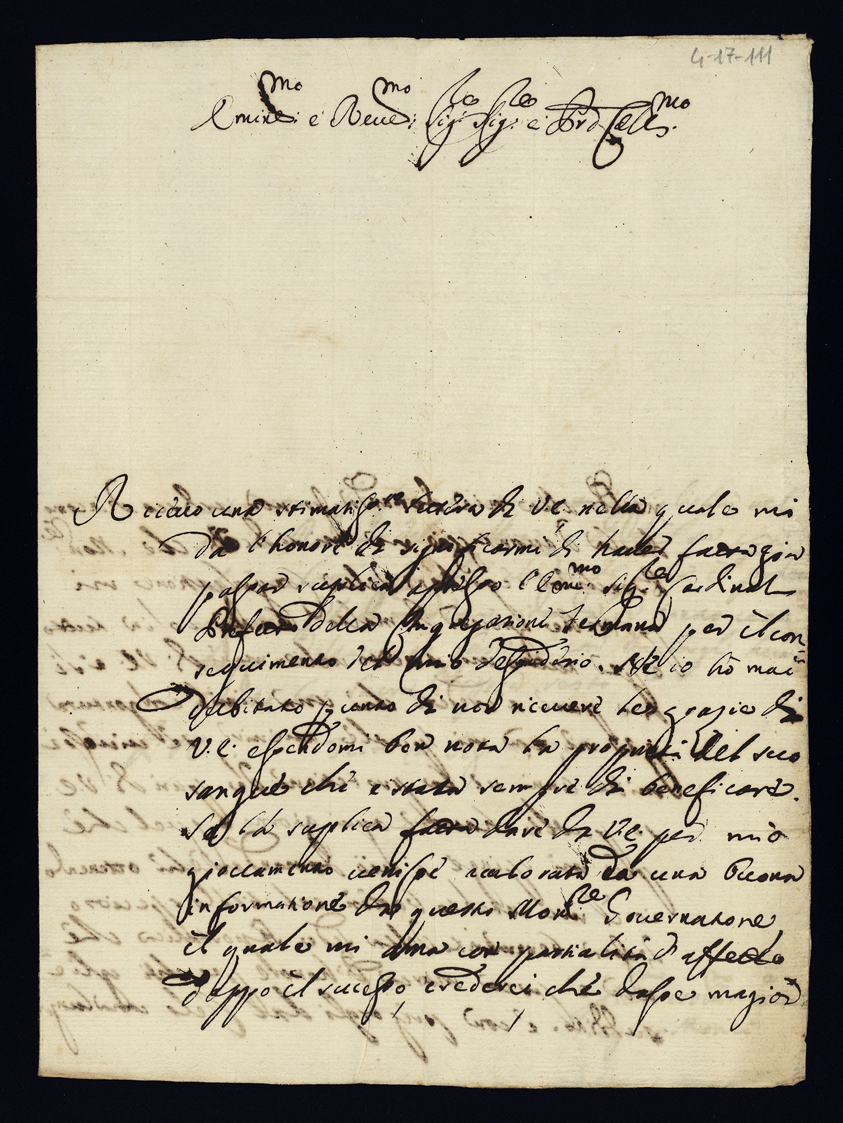 4-17-111
Emin.mo e Reve.mo Sig.re Sig.re e Prõ Coll.mo
Riceuo una stimatiss.ma lettera di V.E. nella quale mi
da l'honore di significarmi di hauer fatta già
passar suplica apresso l'Em.mo Sig.re Cardinal
Prefetto della Congregazione per il con-
seguimento del mio desiderio. Ne io hò mai
dubitato punto di non riceuere le grazie di
V.E. essendomi ben nota la propietà del suo
sangue che è stata sempre di beneficare.
Se la suplica fatta dare da V.E. per mio
giouamento uenisse aualorata da una buona
informatione di questo Mon.re Gouernatore
il quale mi ama con partialità d'affetto
doppo il sucesso, crederei che dasse magior